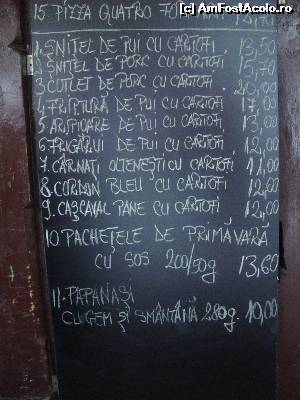 © www.AmFostAcolo.ro
15 PIZZA QUATRO
1. ȘNIȚEL DE PUI CU CARTOFI 13,50
2. ȘNIȚEL DE PORC CU CARTOFI 15,70
3 COTLET DE PORC CU CARTOFI 20,00
4 FRIPTURĂ DE PUI CU CARTOFI 17,00
5 ARIPIOARE DE PUI CU CARTOFI 13,00
6. FRIGĂRUI DE PUI CU CARTOFI 12,00
7. CÂRNAȚI OLTENEȘTI CU CARTOFI 11,00
8 CORDON BLEU CU CARTOFI 12,00
9. CAȘCAVAL PANE CU CARTOFI 12,00
10 PACHEȚELE DE PRIMĂVARĂ
CU SOS 200/50g 13,60
11. PAPANAȘI
CU GEM ȘI SMÂNTÂNĂ 280g. 10,00